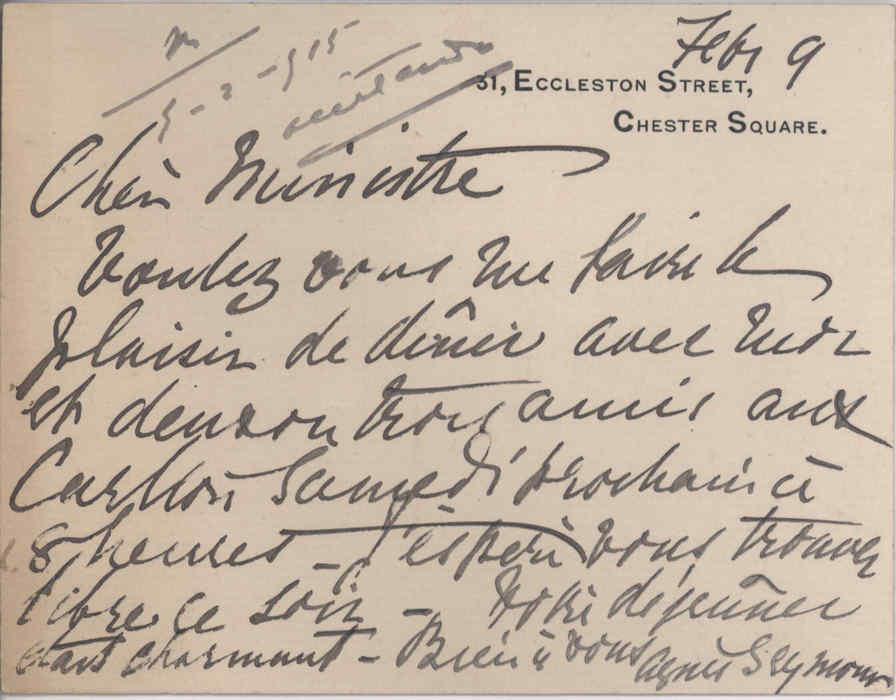 9-2-915
Febr 9
31, ECCLESTON STREET,
CHESTER SQUARE.
Cher Ministre
Voulez vous me faire le
plaisir de dîner avec moi
et deux ou trois amis aux
Carlton Samedi prochain à
8 heures - J'éspère vous trouver
libre ce soir - Votre déjeuner
était charmant - Bien à vous Agnes Seymour